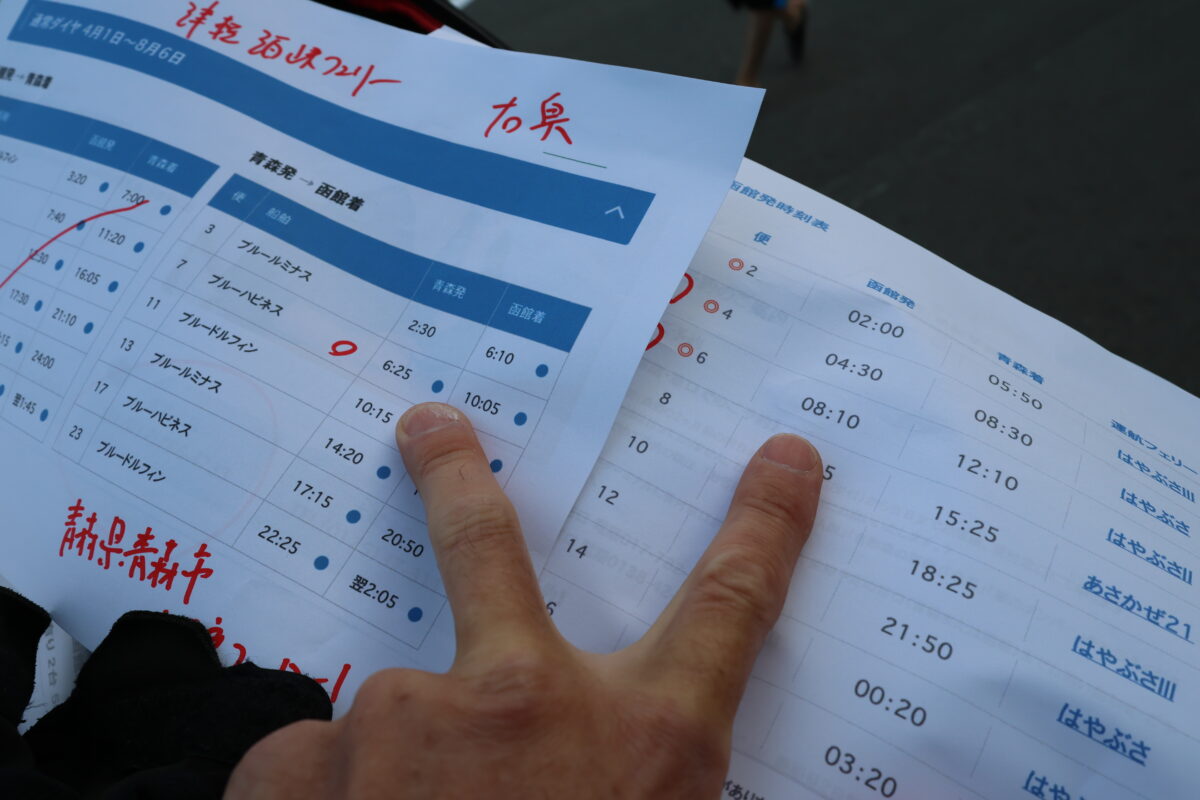 津軽海峡フェリー
右奥
通常ダイヤ 4月1日～8月6日
館発 → 青森着
函館発 青森着
3:20 7:00
7:40 11:20
12:30 16:05
17:30 21:10
24:00
翌1:45
青森発 → 函館着
便 船舶 青森発 函館着
3 ブルールミナス 2:30 6:10
7 ブルーハピネス 6:25 10:05
11 ブルードルフィン 10:15
13 ブルールミナス 14:20
17 ブルーハピネス 17:15 20:50
23 ブルードルフィン 22:25 翌2:05
青森県青森市
函館発時刻表
便 函館発 青森着 運航フェリー
◎2 02:00 05:50 はやぶさIII
◎4 04:30 08:30 はやぶさ
◎6 08:10 12:10 はやぶさII
8 5 15:25 あさかぜ21
10 18:25 はやぶさIII
12 21:50 はやぶさ
14 00:20 はや
6 03:20